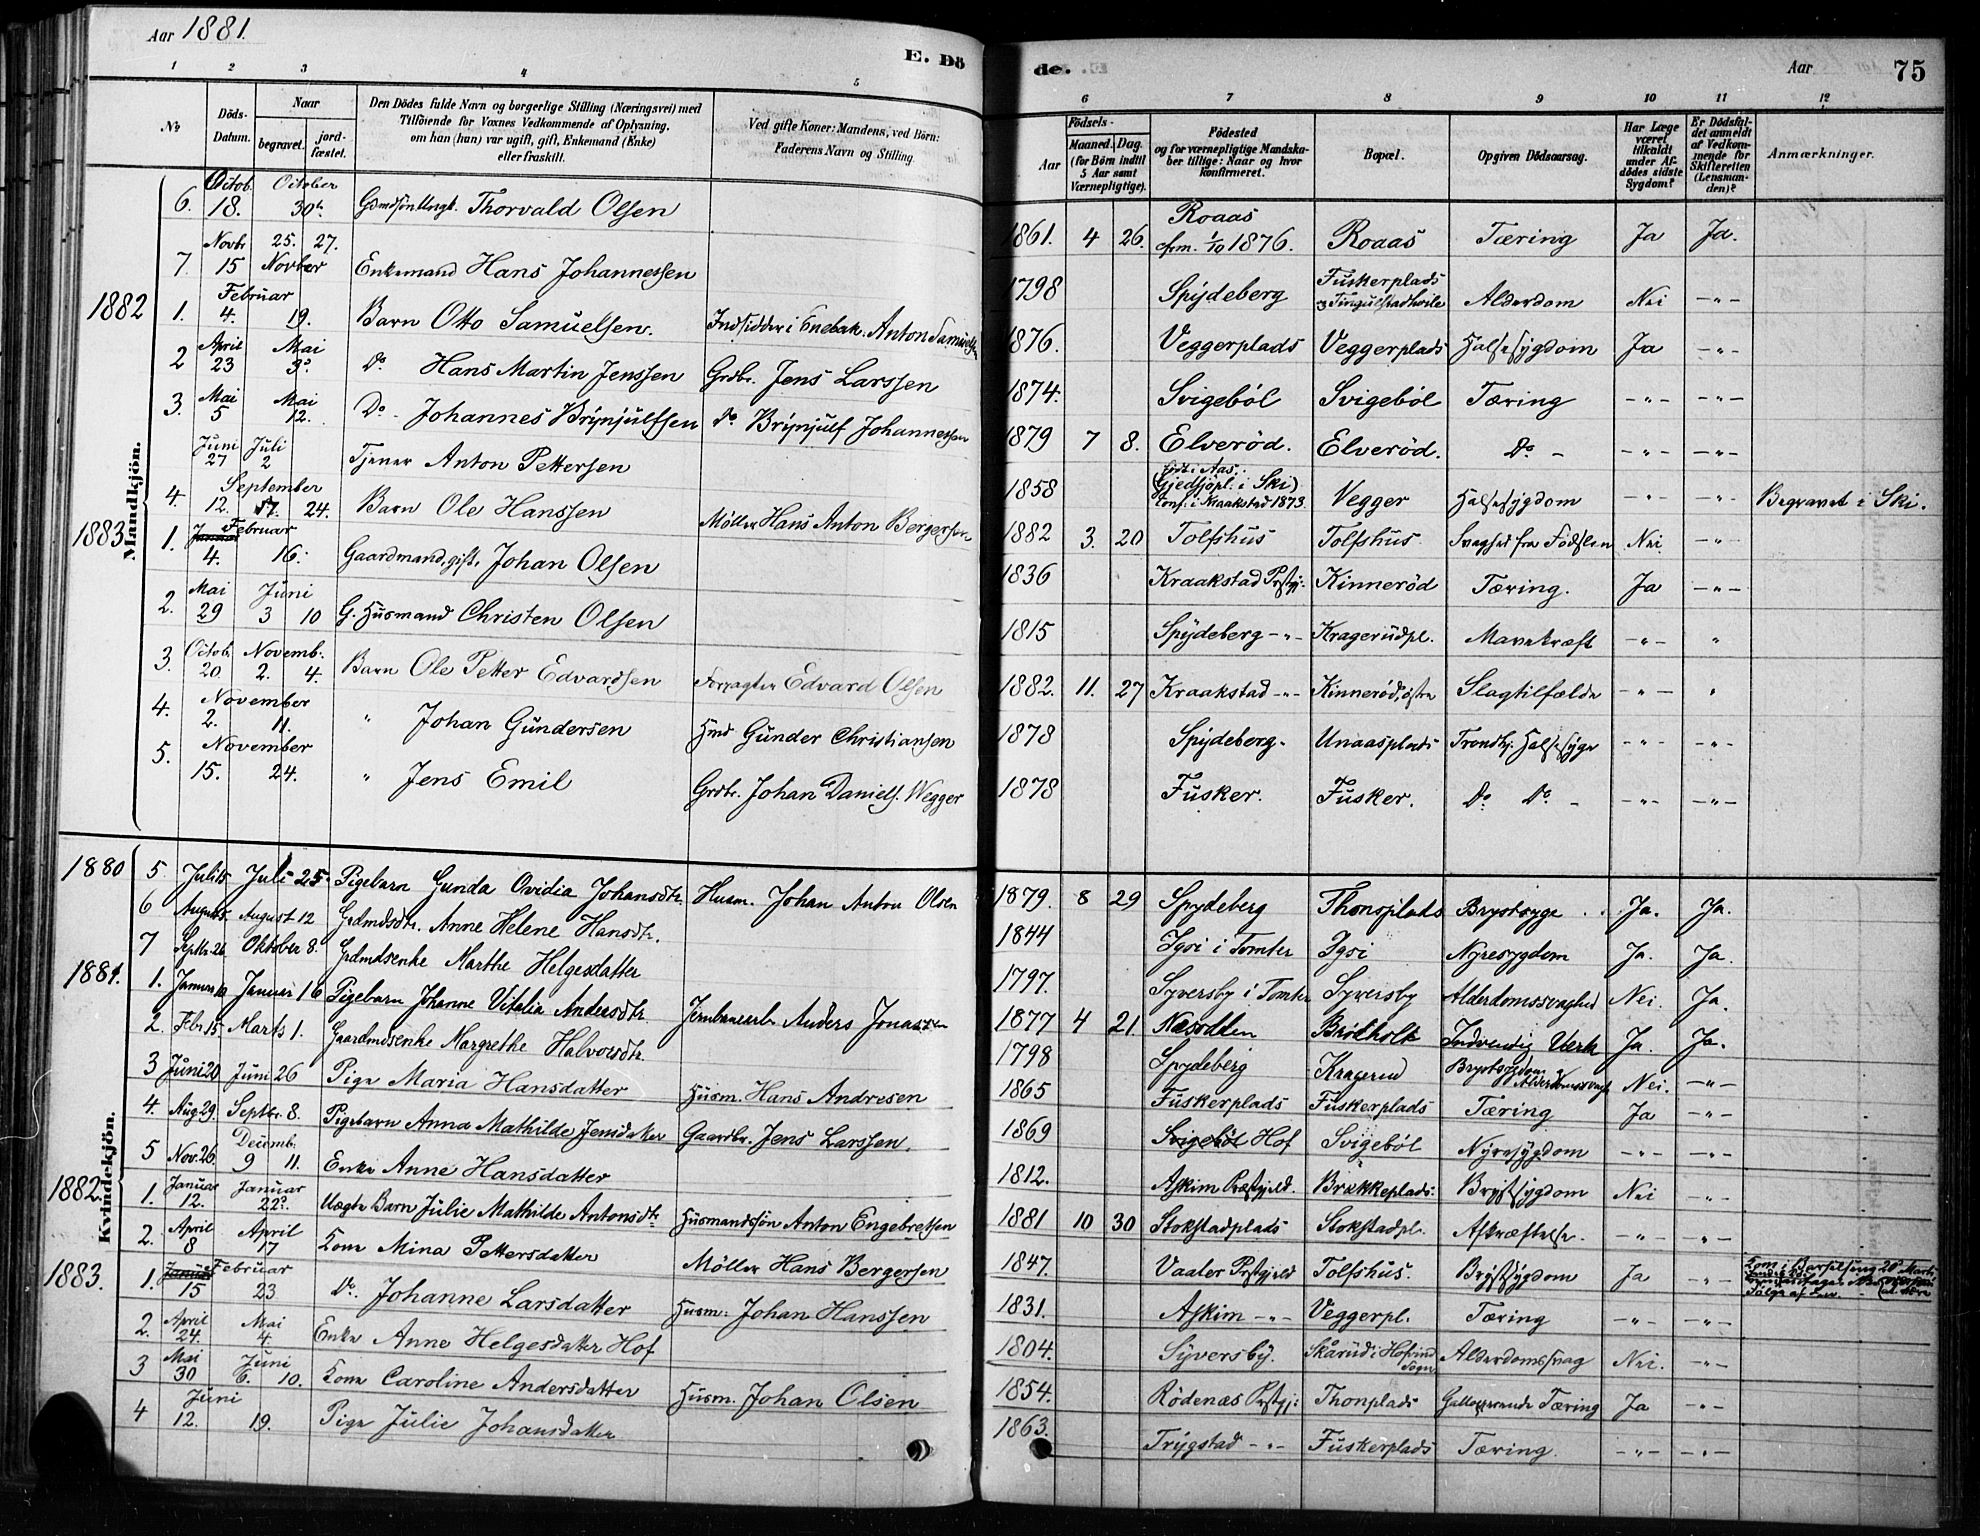 Aar 1881.
E. Dö
de.
Aar
75
1 2 3 4 5 6 7 8 9 10 11 12
No
Döds-Datum.
Naar
begravet.
jord-fæstet.
Den Dödes fulde Navn og borgerlige Stilling (Næringsvei) med
Tilföiende for Voxnes Vedkommende af Oplysning,
om han (hun) var ugift, gift, Enkemand (Enke)
eller fraskilt.
Ved gifte Koner: Mandens, ved Börn:
Faderens Navn og Stilling.
Födsels-
Aar
Maaned. Dag.
(for Börn indtil
5 Aar samt
Værnepligtige).
Födested
og for værnepligtige Mandska-
ber tillige: Naar og hvor
konfirmeret.
Bopæl.
Opgiven Dödsaarsag.
Har Læge
været
tilkaldt
under Af-
dödes sidste
Sygdom?
Er Dödsfal-
det anmeldt
af Vedkom-
mende for
Skifteretten
(Lensman-
den)?
Anmærkninger.
Mandkjön.
6. Octob. 18. October 30te Thorvald Olsen 1861. 4 26. Roaas cfrm. 1/10 1876. Roaas Tæring Ja Ja.
7. Novbr 15 25. Novber 27. Enkemand Hans Johannessen 1798 Spydeberg Fuskerplads Alderdom Nei -"-
1882 1. Februar 4. 19. Barn Otto Samuelsen. Indsidder i Enebak. Anton Samuelsen 1876. Veggerplads Veggerplads Halssygdom Ja -"-
2 April 23 Mai 3. Do. Hans Martin Jenssen Grdbr. Jens Larssen 1874. Svigeböl Svigeböl Tæring -"- -"-
3. Mai 5 Mai 12. Do. Johannes Brynjulfsen Do Brynjulf Johannessen 1879 7 8. Elveröd. Elveröd. Do - -"- -"-
Juni 27 Juli 2 Tjener Anton Pettersen 1858 født i Aas. (Gjedsjøpl. i Ski) conf. i Kraakstad 1873. Vegger Halssygdom -"- -"- Begravet i Ski.
4. September 12. 17. 24. Barn Ole Hanssen Møller Hans Anton Bergersen 1882 3. 20 Tolfshus Tolfshus Svaghed fra Födslen Nei -"-
1883 1. Januar Februar 4. 16. Gaardmand, gift, Johan Olsen 1836 Kraakstad Prstgj: Kinneröd Tæring. Ja -"-
2. Mai 29 Juni 3 10 G. Husmand Christen Olsen 1815 Spydeberg -"- Kragerudpl. Mavekræft -"- "
3. Octob. 20. Novemb. 2. 4. Barn Ole Petter Edvardsen Forpagter Edvard Olsen 1882. 11. 27 Kraakstad -"- Kinneröd, østre Slagtilfælde -"- "
4. November 2. 11. " Johan Gundersen Hmd Gunder Christiansen 1878 Spydeberg. Unaasplads Trondhj. Halssyge -"- -"-
5. November 15. 24. " Jens Emil Grdbr. Johan Daniels. Wegger 1878 Fusker. Fusker. Do Do - -"- -"-
Kvindekjön.
1880 5 Juli 15 Juli 25 Pigebarn Gunda Ovidia Johansdtr. Husm. Johan Anton Olsen 1879. 8 29 Spydeberg Thonsplads Brystsyge Ja. Ja.
6 August 5. August 12 Grdmdsdtr. Anne Helene Hansdtr. 1844 Igsi i Tomter Igsi Nyresygdom Ja. Ja.
7 Septbr. 26 Oktober 8. Grdmdsenke Marthe Helgesdatter 1797. Syversby i Tomter Syversby Alderdomssvaghed Nei. Ja.
1881. 1. Januar 10 Januar 16 Pigebarn Johanne Vitalia Andersdtr. Jernbanearb. Anders Jonassen 1877 4 21 Næsodden Brödholt Indvendig Værk Ja. Ja.
2. Febr. 15. Marts 1. Gaardmdsenke Margrethe Halvorsdtr. 1798 Spydeberg Kragerud Brystsygdom, Alderdomssvag Nei. -"-
3 Juni 20 Juni 26 Pige Maria Hansdatter Husm. Hans Andresen 1865 Fuskerplads Fuskerplads Tæring Ja -"-
4. Aug. 29. Septbr. 8. Pigebarn Anna Mathilde Jensdatter Gaardbr. Jens Larssen. 1869 Svigeböl Hof Svigeböl Nyresygdom -"- -"-
5 Nov. 26 Decemb. 9 11. Enke Anne Hansdatter 1812. Askim Præstgjeld. Brækkeplads. Brystsygdom Nei -"-
1882. 1. Januar 12. Januar 22. Uægte Barn Julie Mathilde Antonsdtr Husmandssøn Anton Engebretsen 1881 10 30 Stokstadplads Stokstadpl. Afkræftelse. -"- -"-
2. April 8 April 17 Kone Mina Pettersdatter Møller Hans Bergersen 1847. Vaaler Prstgjeld Tolfshus. Brystsygdom Ja -"- Kom i Barselseng 28 Marts
1883. 1. Januar Februar 15 23 Do. Johanne Larsdatter Husm: Johan Hanssen 1831. Askim -"- Veggerpl. Tæring -"- -"-
2. April 24. Mai 4. Enke Anne Helgesdatter Hof 1804. Syversby. Skårud i Hovind Sogn Alderdomssvag Nei. -"-
3 Mai 30 Juni 6. 10. Kone Caroline Andersdatter Husm. Johan Olsen 1854. Rödenæs Prstgj: Thonplads Galloperende Tæring Ja -"-
4 Juni 12. 19. Pige Julie Johansdatter 1863. Trygstad -"- Fuskerplads Tæring. -"- -"-